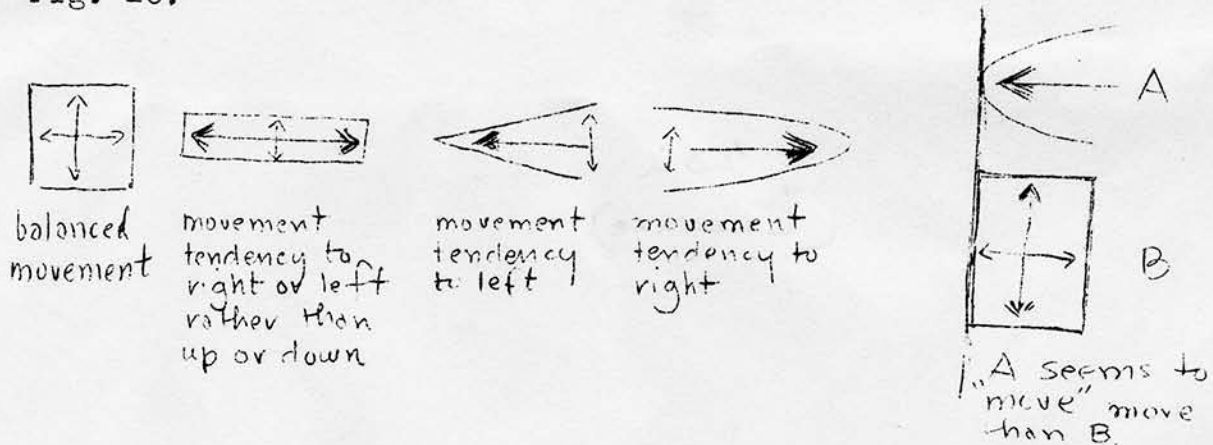 balanced
movement
movement
tendency to
right or left
rather than
up or down
movement
tendency
to left
movement
tendency to
right
A
B
„A seems to
move" move
than B.